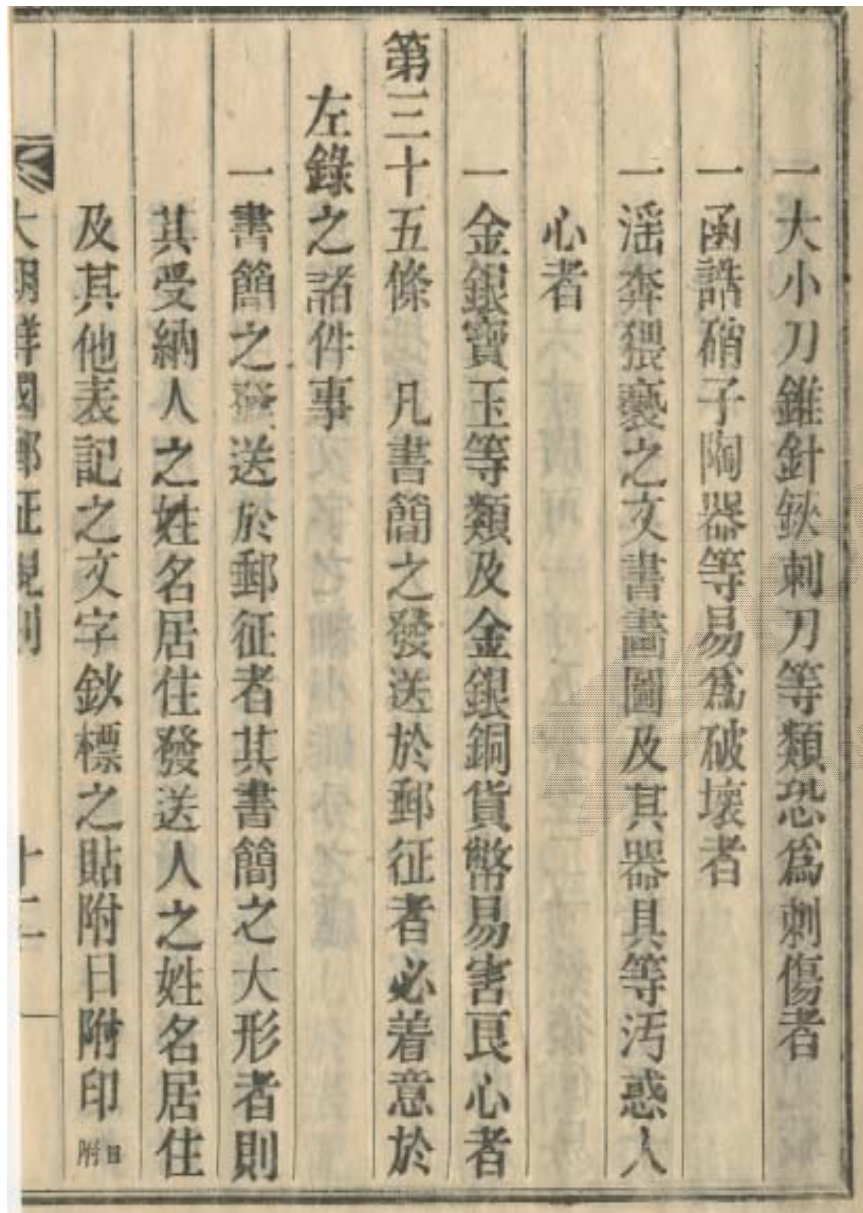 一大小刀錐針鋏刺刀等類恐爲刺傷者
一函誥硝子陶器等易爲破壞者
一淫奔猥褻之文書畵圖及其器具等汚惑人
心者
一金銀寶玉等類及金銀銅貨幣易害良心者
第三十五條 凡書簡之發送於郵征者必着意於
左錄之諸件事
一書簡之發送於郵征者其書簡之大形者則
其受納人之姓名居住發送人之姓名居住
及其他表記之文字鈥標之貼附日附印 日附
大朝鮮國郵征規則 十二